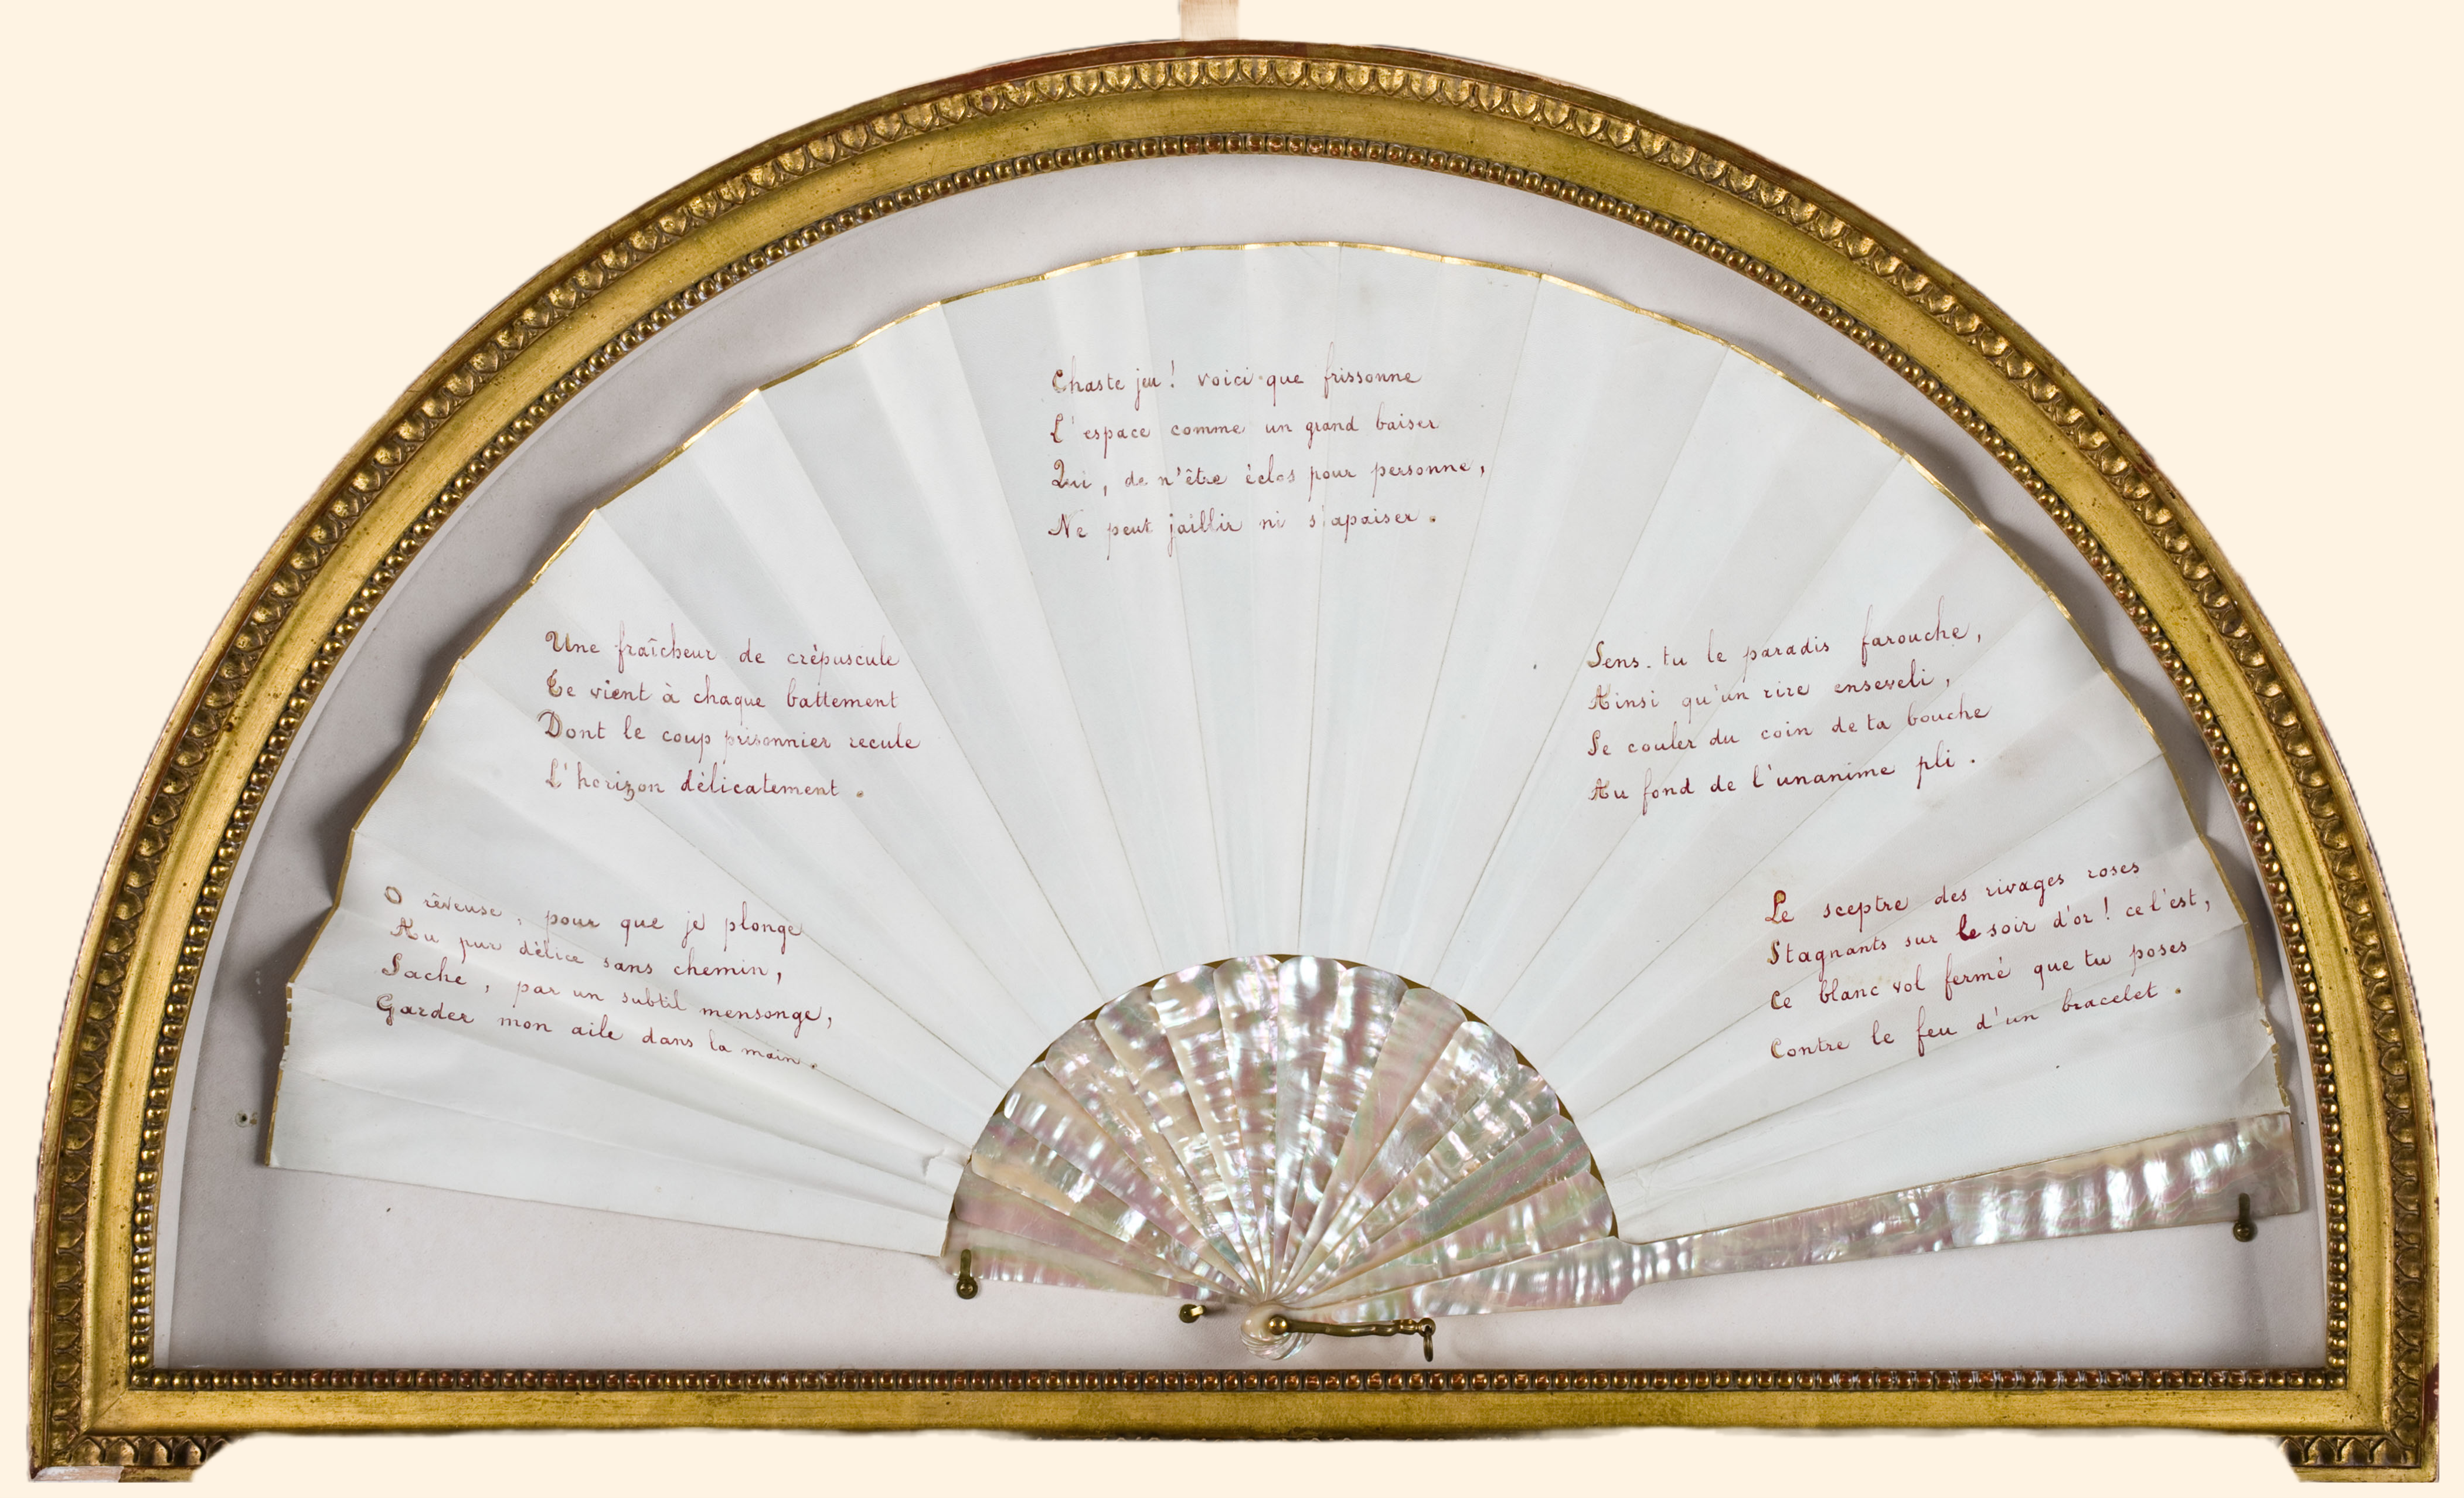 O rêveuse, pour que je plonge
Au pur délice sans chemin,
Sache, par un subtil mensonge,
Garder mon aile dans la main.
Une fraîcheur de crépuscule
Te vient à chaque battement
Dont le coup prisonnier recule
L'horizon délicatement.
Chaste jeu! voici que frissonne
L'espace comme un grand baiser
Qui, de n'être éclos pour personne,
Ne peut jaillir ni s'apaiser.
Sens-tu le paradis farouche,
Ainsi qu'un rire enseveli,
Se couler du coin de ta bouche
Au fond de l'unanime pli.
Le sceptre des rivages roses
Stagnants sur le soir d'or! ce l'est,
Ce blanc vol fermé que tu poses
Contre le feu d'un bracelet.